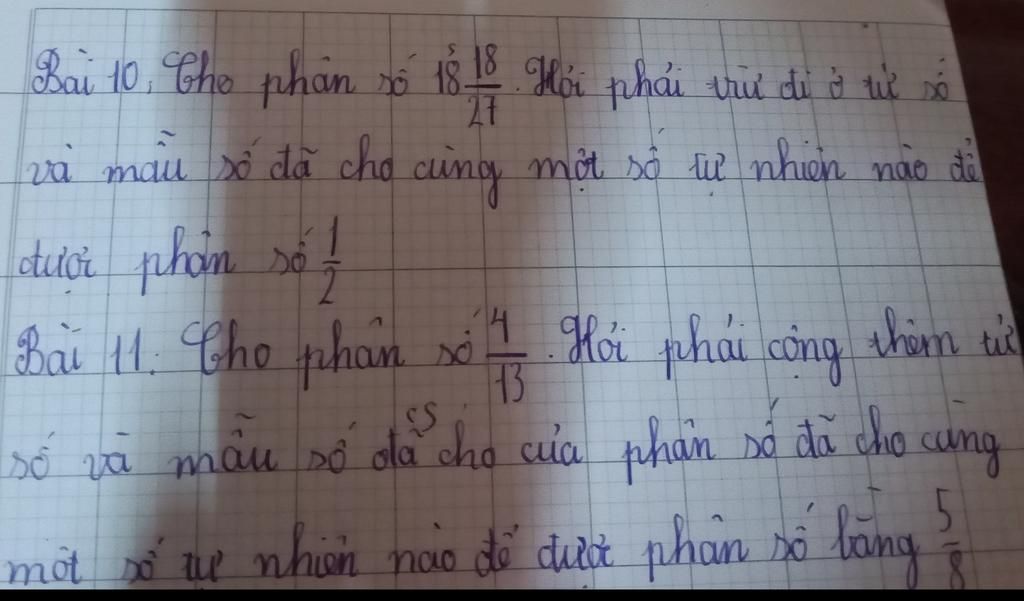 Bài 10, Cho phân số 18 18/27. Hỏi phải trừ đi ở tử số
và mẫu số đã cho cùng một số tự nhiên nào để
được phân số 1/2
Bài 11. Cho phân số 4/13. Hỏi phải cộng thêm tử
số và mẫu số đã cho của phân số đã cho cùng
một số tự nhiên nào để được phân số bằng 5/8